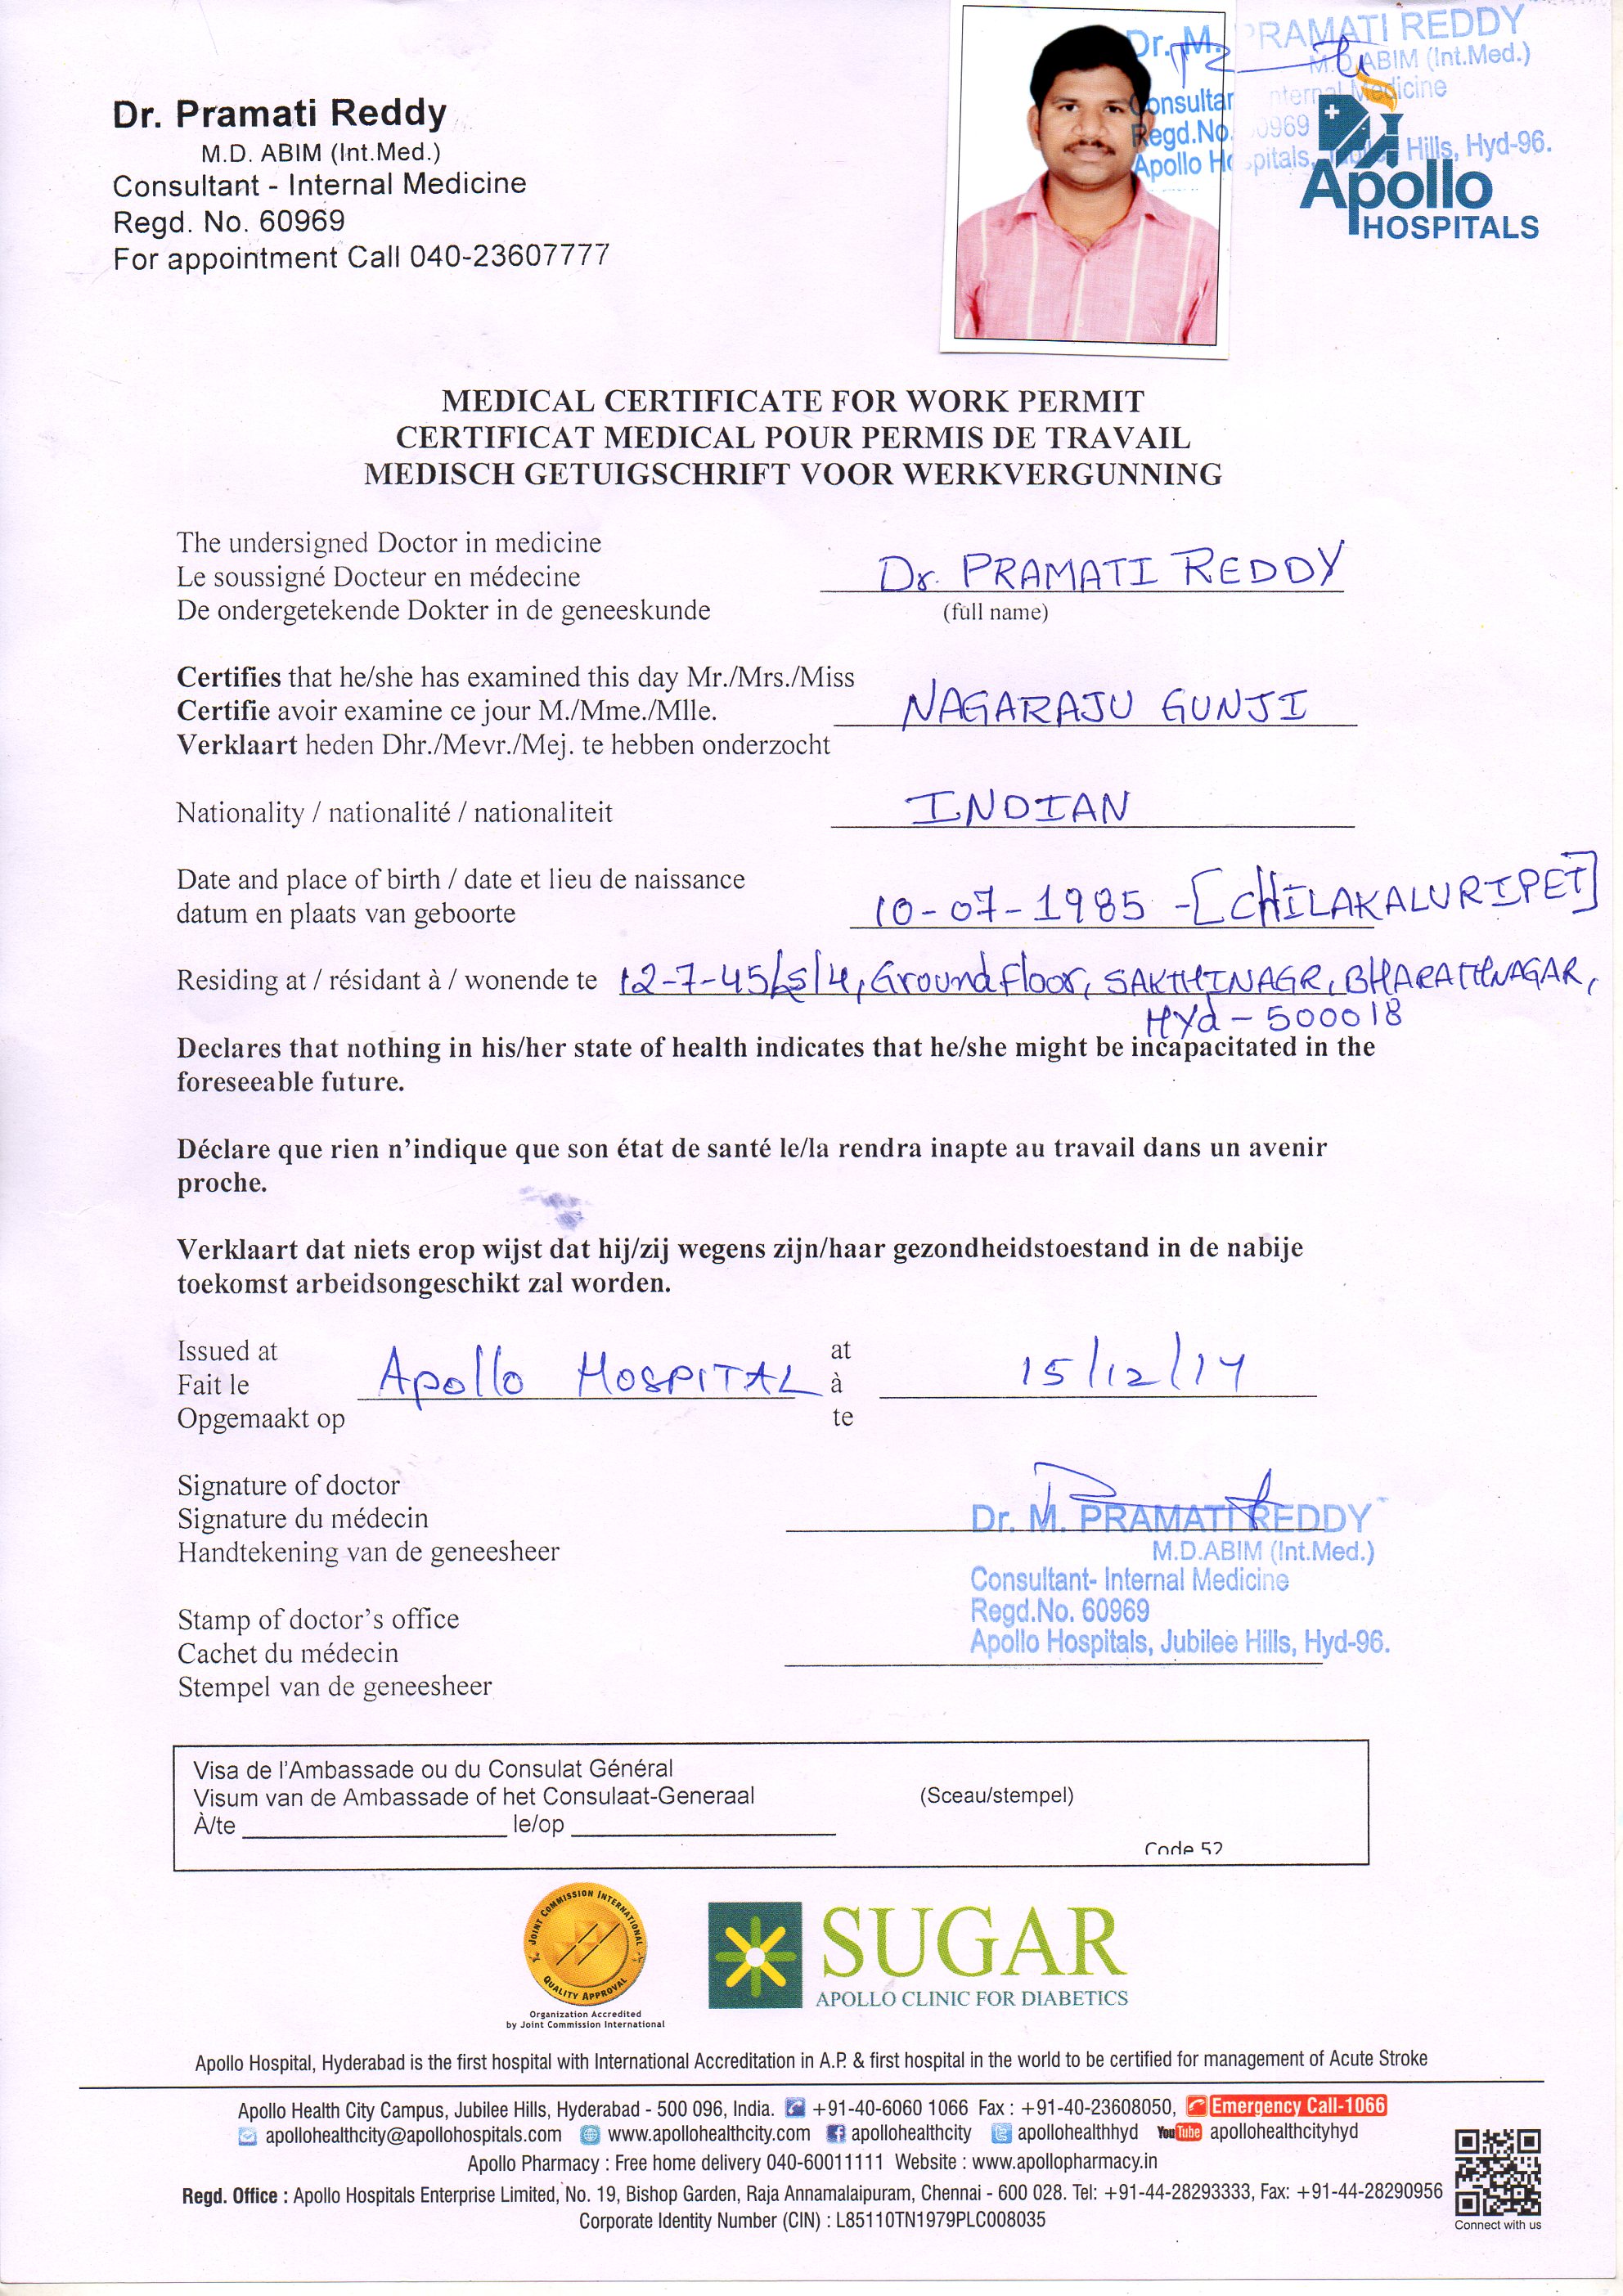 Dr. Pramati Reddy
M.D. ABIM (Int.Med.)
Consultant - Internal Medicine
Regd. No. 60969
For appointment Call 040-23607777
Dr. M. PRAMATI REDDY
M.D.ABIM (Int.Med.)
Consultar nternal Medicine
Regd.No. 60969
Apollo Hospitals, Hills, Hyd-96.
Apollo
HOSPITALS
MEDICAL CERTIFICATE FOR WORK PERMIT
CERTIFICAT MEDICAL POUR PERMIS DE TRAVAIL
MEDISCH GETUIGSCHRIFT VOOR WERKVERGUNNING
The undersigned Doctor in medicine
Le soussigné Docteur en médecine Dr. PRAMATI REDDY
De ondergetekende Dokter in de geneeskunde (full name)
Certifies that he/she has examined this day Mr./Mrs./Miss
Certifie avoir examine ce jour M./Mme./Mlle. NAGARAJU GUNJI
Verklaart heden Dhr./Mevr./Mej. te hebben onderzocht
Nationality / nationalité / nationaliteit INDIAN
Date and place of birth / date et lieu de naissance
datum en plaats van geboorte 10-07-1985 -[CHILAKALURIPET]
Residing at / résidant à / wonende te 12-7-45/5/4, Ground floor, SAKTHINAGR, BHARATHNAGAR,
HYd - 500018
Declares that nothing in his/her state of health indicates that he/she might be incapacitated in the
foreseeable future.
Déclare que rien n'indique que son état de santé le/la rendra inapte au travail dans un avenir
proche.
Verklaart dat niets erop wijst dat hij/zij wegens zijn/haar gezondheidstoestand in de nabije
toekomst arbeidsongeschikt zal worden.
Issued at at
Fait le Apollo HOSPITAL à 15/12/14
Opgemaakt op te
Signature of doctor
Signature du médecin
Handtekening van de geneesheer
Dr. M. PRAMATI REDDY
M.D.ABIM (Int.Med.)
Consultant- Internal Medicine
Regd.No. 60969
Apollo Hospitals, Jubilee Hills, Hyd-96.
Stamp of doctor's office
Cachet du médecin
Stempel van de geneesheer
Visa de l'Ambassade ou du Consulat Général
Visum van de Ambassade of het Consulaat-Generaal (Sceau/stempel)
À/te le/op
Code 52
JOINT COMMISSION INTERNATIONAL
QUALITY APPROVAL
Organization Accredited
by Joint Commission International
SUGAR
APOLLO CLINIC FOR DIABETICS
Apollo Hospital, Hyderabad is the first hospital with International Accreditation in A.P. & first hospital in the world to be certified for management of Acute Stroke
Apollo Health City Campus, Jubilee Hills, Hyderabad - 500 096, India. +91-40-6060 1066 Fax : +91-40-23608050, Emergency Call-1066
apollohealthcity@apollohospitals.com www.apollohealthcity.com apollohealthcity apollohealthhyd YouTube apollohealthcityhyd
Apollo Pharmacy : Free home delivery 040-60011111 Website : www.apollopharmacy.in
Regd. Office : Apollo Hospitals Enterprise Limited, No. 19, Bishop Garden, Raja Annamalaipuram, Chennai - 600 028. Tel: +91-44-28293333, Fax: +91-44-28290956
Corporate Identity Number (CIN) : L85110TN1979PLC008035
Connect with us